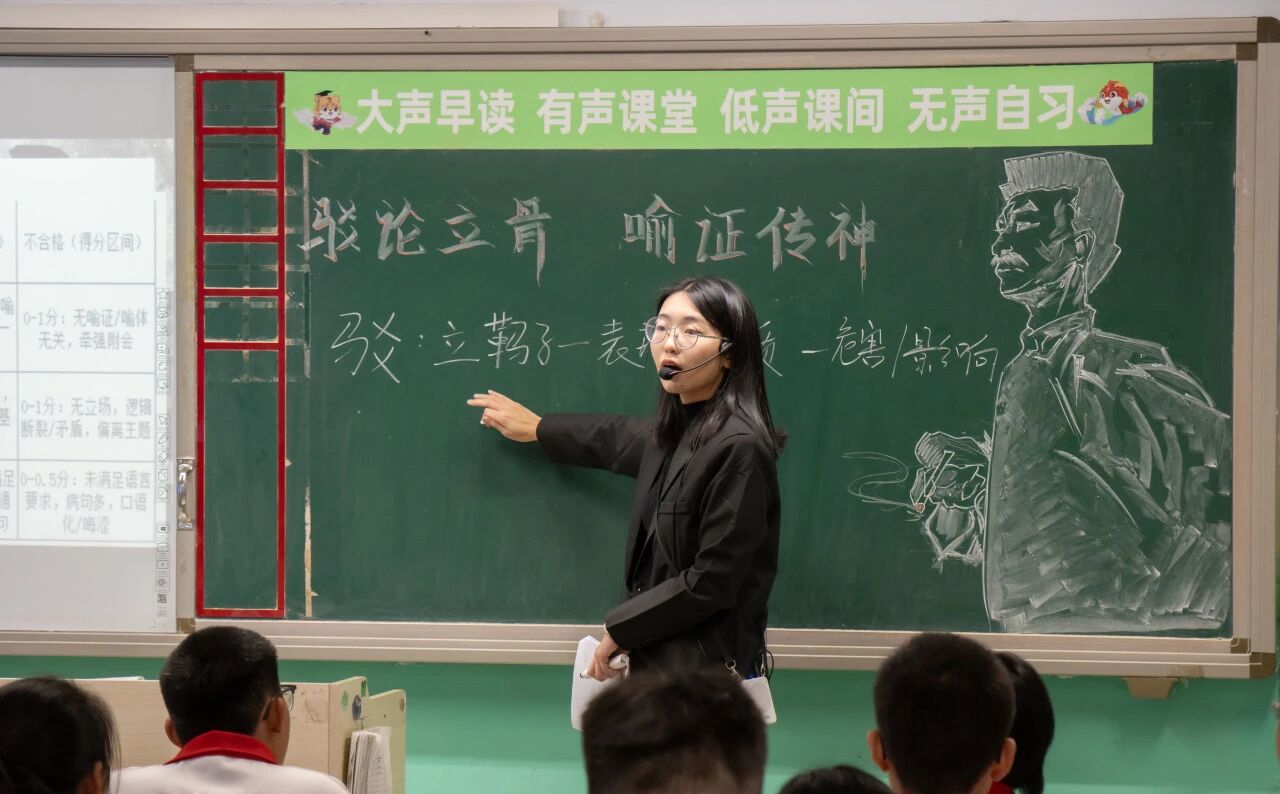 大声早读 有声课堂 低声课间 无声自习
驳论立骨 喻证传神
驳：立靶子—表 —危害/影响
不合格（得分区间）
喻
0-1分：无喻证/喻体
无关，牵强附会
0-1分：无立场，逻辑
断裂/矛盾，偏离主题
基
0-0.5分：未满足语言
要求，病句多，口语
化/晦涩
足
通
句